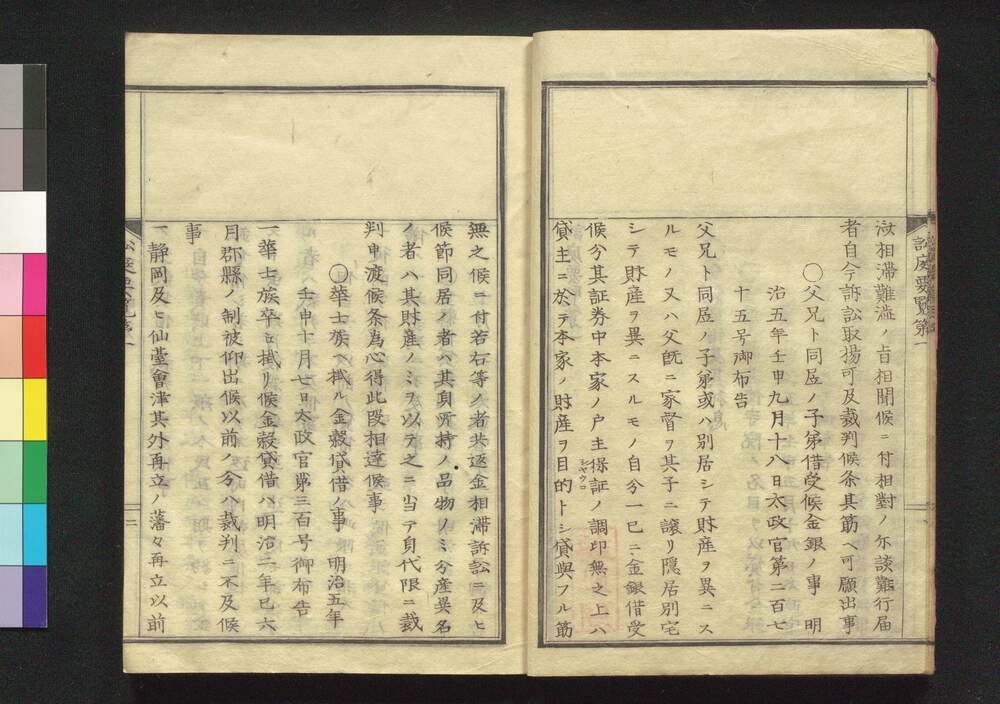 訟庭要覽第一
汝相滞難澁ノ旨相聞候ニ付相對ノ尓該難行届
者自今訴訟取揚可及裁判候条其筋ヘ可願出事
〇父兄ト同居ノ子弟借受候金銀ノ事　明
治五年壬申九月十八日太政官第二百七
十五号御布告
父兄ト同居ノ子弟或ハ別居シテ財産ヲ異ニス
ルモノ又ハ父既ニ家督ヲ其子ニ譲リ隠居別宅
シテ財産ヲ異ニスルモノ自分一已ニ金銀借受
候分其証券中本家ノ户主保証ノ調印無之上ハ
シヤウコ
貸主ニ於テ本家ノ財産ヲ目的トシ貸與フル筋
無之候ニ付若右等ノ者共返金相滞訴訟ニ及ヒ
候節同居ノ者ハ其身所持ノ品物ノミ分産異名
ノ者ハ其財産ノミヲ以テ之ニ当テ身代限ニ裁
判申渡候条為心得此段相達候事
〇華士族ヘ拭ル金穀貸借ノ事　明治五年
壬申十月七日太政官第三百号御布告
一華士族卒ヒ拭リ候金穀貸借ハ明治二年已六
月郡縣ノ制被仰出候以前ノ分ハ裁判ニ不及候
事
一静岡及ヒ仙臺會津其外再立ノ藩々再立以前
訟庭要覽第一
二